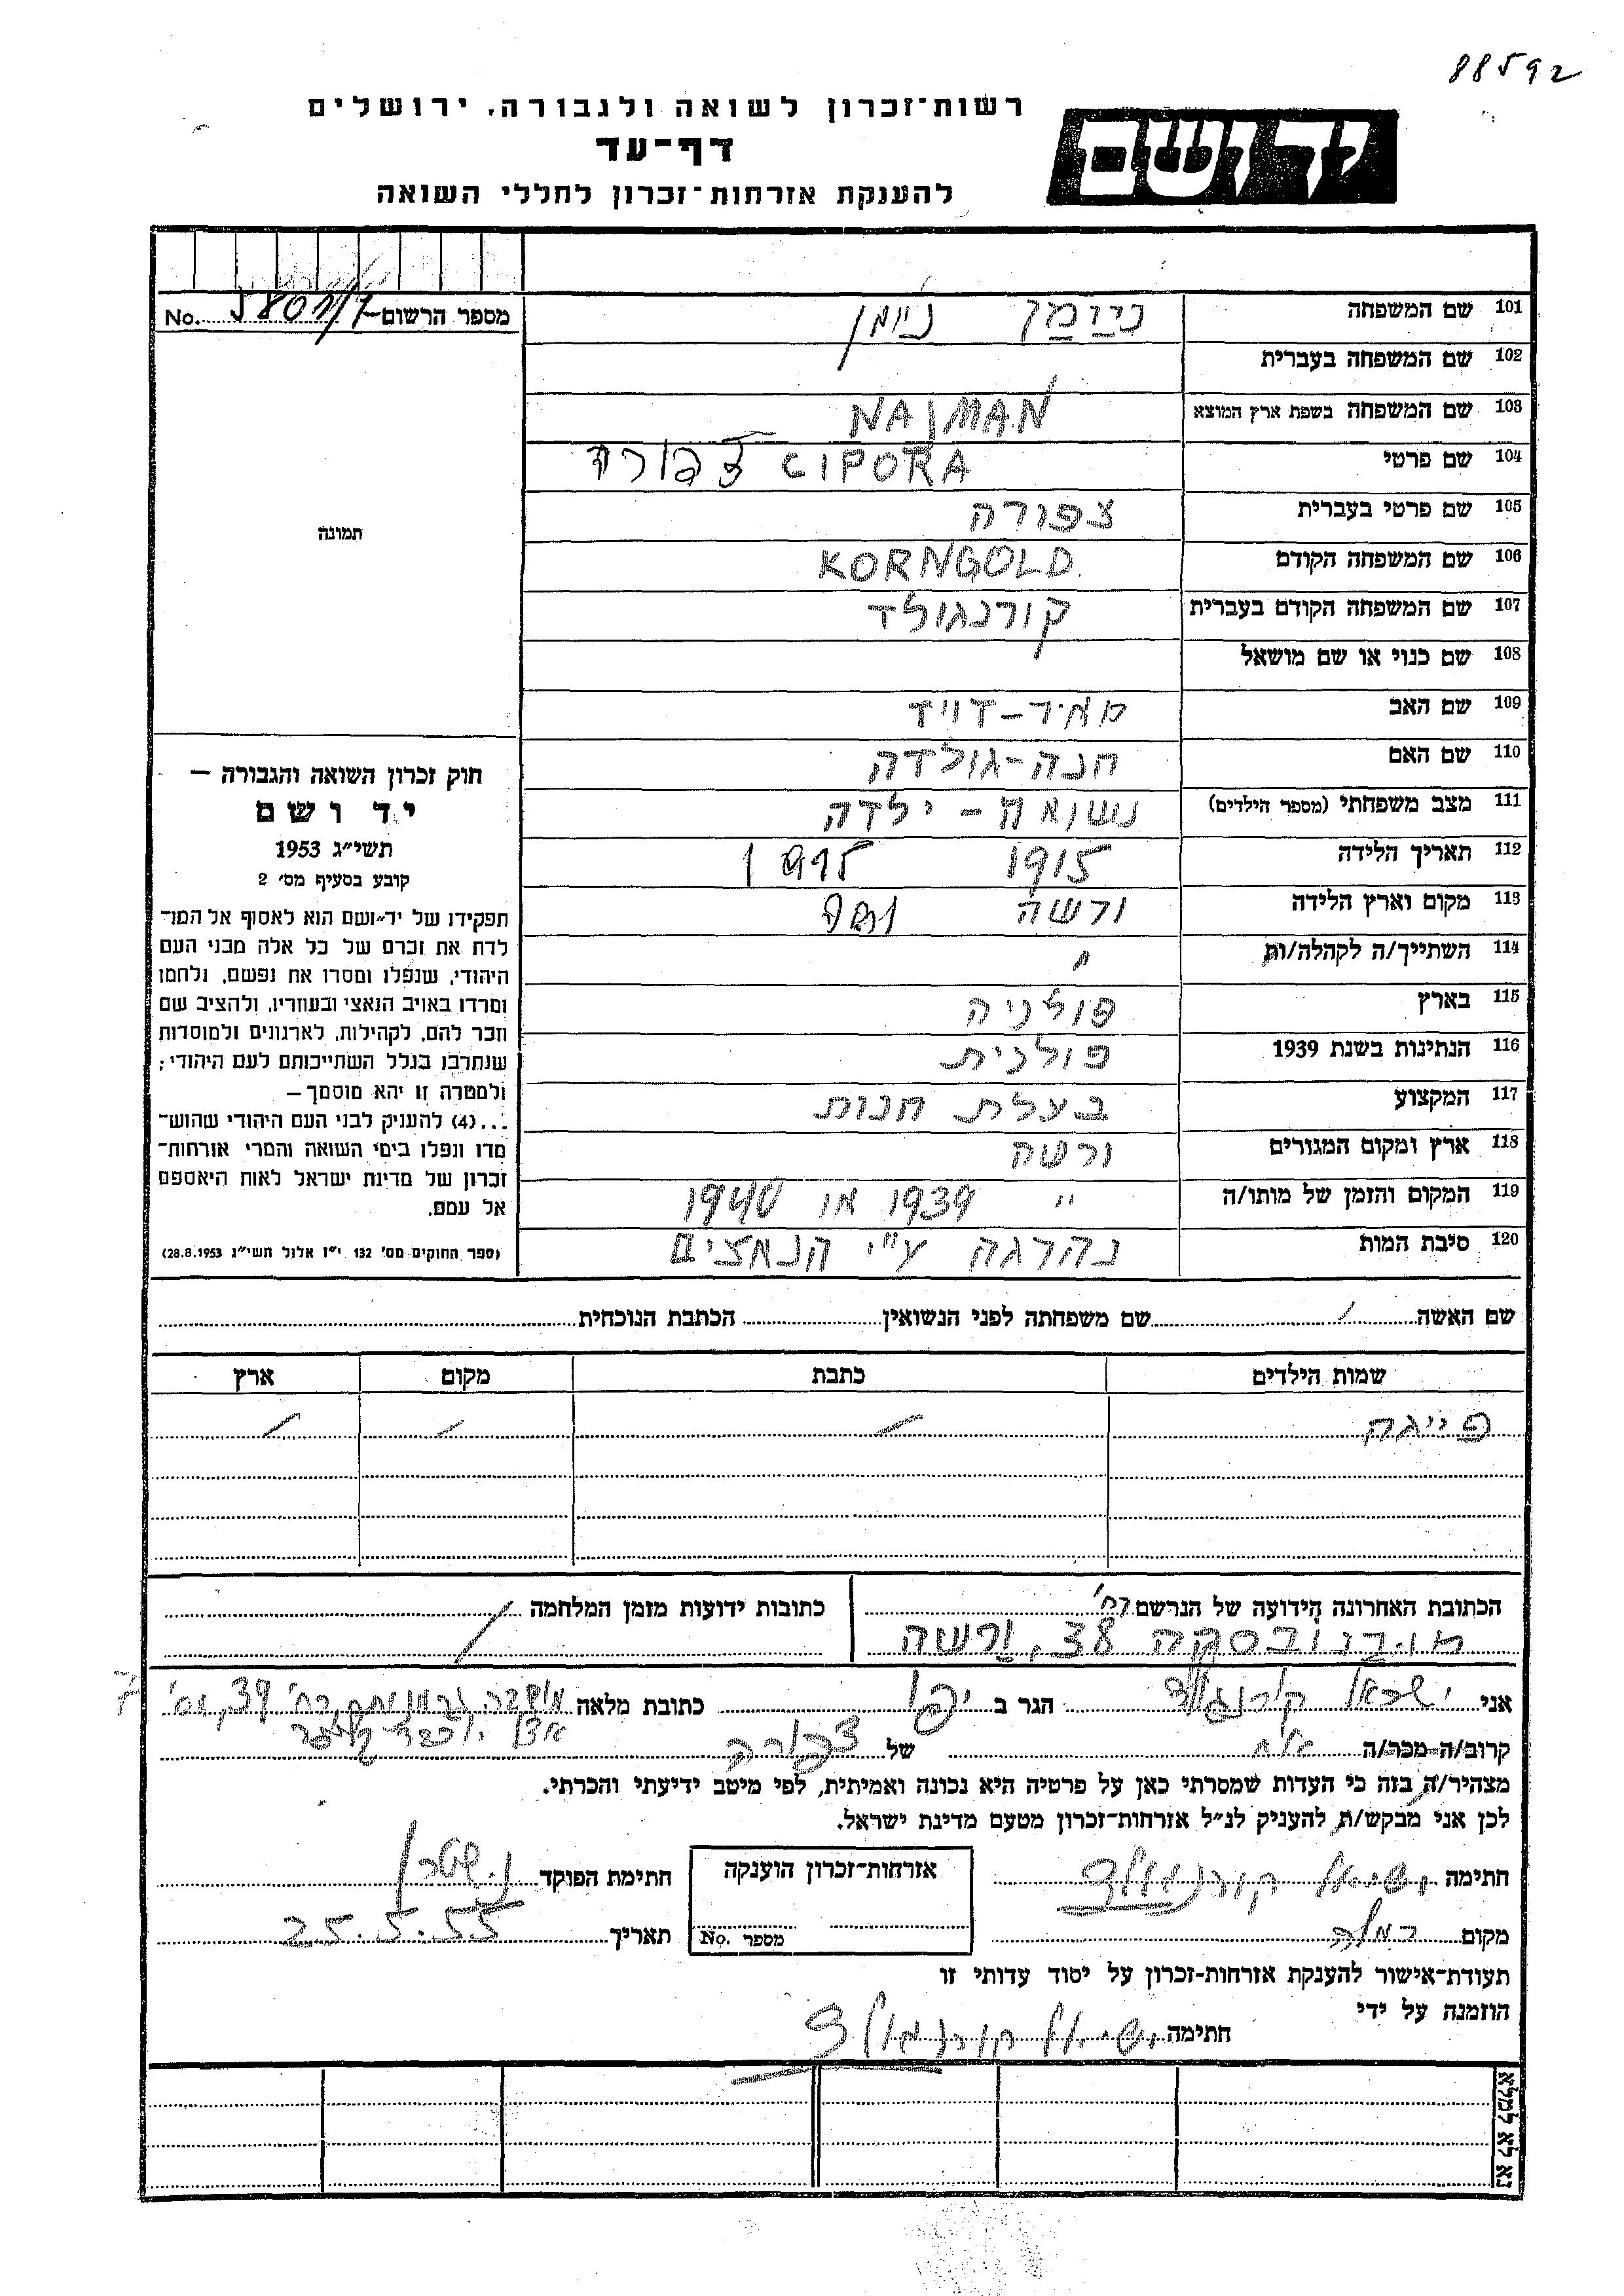 88592
רשות־זכרון לשואה ולגבורה, ירושלים
דף־עד
להענקת אזרחות־זכרון לחללי השואה
יד ושם
מספר הרשום No.
101 שם המשפחה ניימן ניימן
102 שם המשפחה בעברית
103 שם המשפחה בשפת ארץ המוצא NAJMAN
104 שם פרטי CIPORA צפורה
105 שם פרטי בעברית צפורה
106 שם המשפחה הקודם KORNGOLD
107 שם המשפחה הקודם בעברית קורנגולד
108 שם כנוי או שם מושאל
109 שם האב מאיר-דויד
110 שם האם חנה-גולדה
111 מצב משפחתי (מספר הילדים) נשואה - ילדה
112 תאריך הלידה 1915 1915
113 מקום וארץ הלידה ורשה ורשה
114 השתייך/ה לקהלה/ות "
115 בארץ פולניה
116 הנתינות בשנת 1939 פולנית
117 המקצוע בעלת חנות
118 ארץ ומקום המגורים ורשה
119 המקום והזמן של מותו/ה " 1939 או 1940
120 סיבת המות נהרגה ע"י הנאצים
תמונה
חוק זכרון השואה והגבורה —
יד ושם
תשי״ג 1953
קובע בסעיף מס׳ 2
תפקידו של יד־ושם הוא לאסוף אל המו־
לדת את זכרם של כל אלה מבני העם
היהודי, שנפלו ומסרו את נפשם, נלחמו
ומרדו באויב הנאצי ובעוזריו, ולהציב שם
וזכר להם, לקהילות, לארגונים ולמוסדות
שנחרבו בגלל השתייכותם לעם היהודי;
ולמטרה זו יהא מוסמך —
...(4) להעניק לבני העם היהודי שהוש־
מדו ונפלו בימי השואה והמרי אזרחות־
זכרון של מדינת ישראל לאות היאספם
אל עמם.
(ספר החוקים מס׳ 132 י״ז אלול תשי״ג 28.8.1953)
שם האשה / שם משפחתה לפני הנשואין הכתבת הנוכחית
שמות הילדים כתבת מקום ארץ
פייגה / / /
הכתובת האחרונה הידועה של הנרשם רח'
38, ורשה
כתובות ידועות מזמן המלחמה /
אני ישראל קורנגולד הגר ב יפו כתובת מלאה רח' 39, מס' 7
קרוב/ה-מכר/ה אח של צפורה
מצהיר/ה בזה כי העדות שמסרתי כאן על פרטיה היא נכונה ואמיתית, לפי מיטב ידיעתי והכרתי.
לכן אני מבקש/ת להעניק לנ״ל אזרחות־זכרון מטעם מדינת ישראל.
חתימה ישראל קורנגולד
אזרחות־זכרון הוענקה
חתימת הפוקד
מקום רמלה
מספר No.
תאריך 25.5.55
תעודת־אישור להענקת אזרחות-זכרון על יסוד עדותי זו
הוזמנה על ידי
חתימה ישראל קורנגולד
נא לא למלא